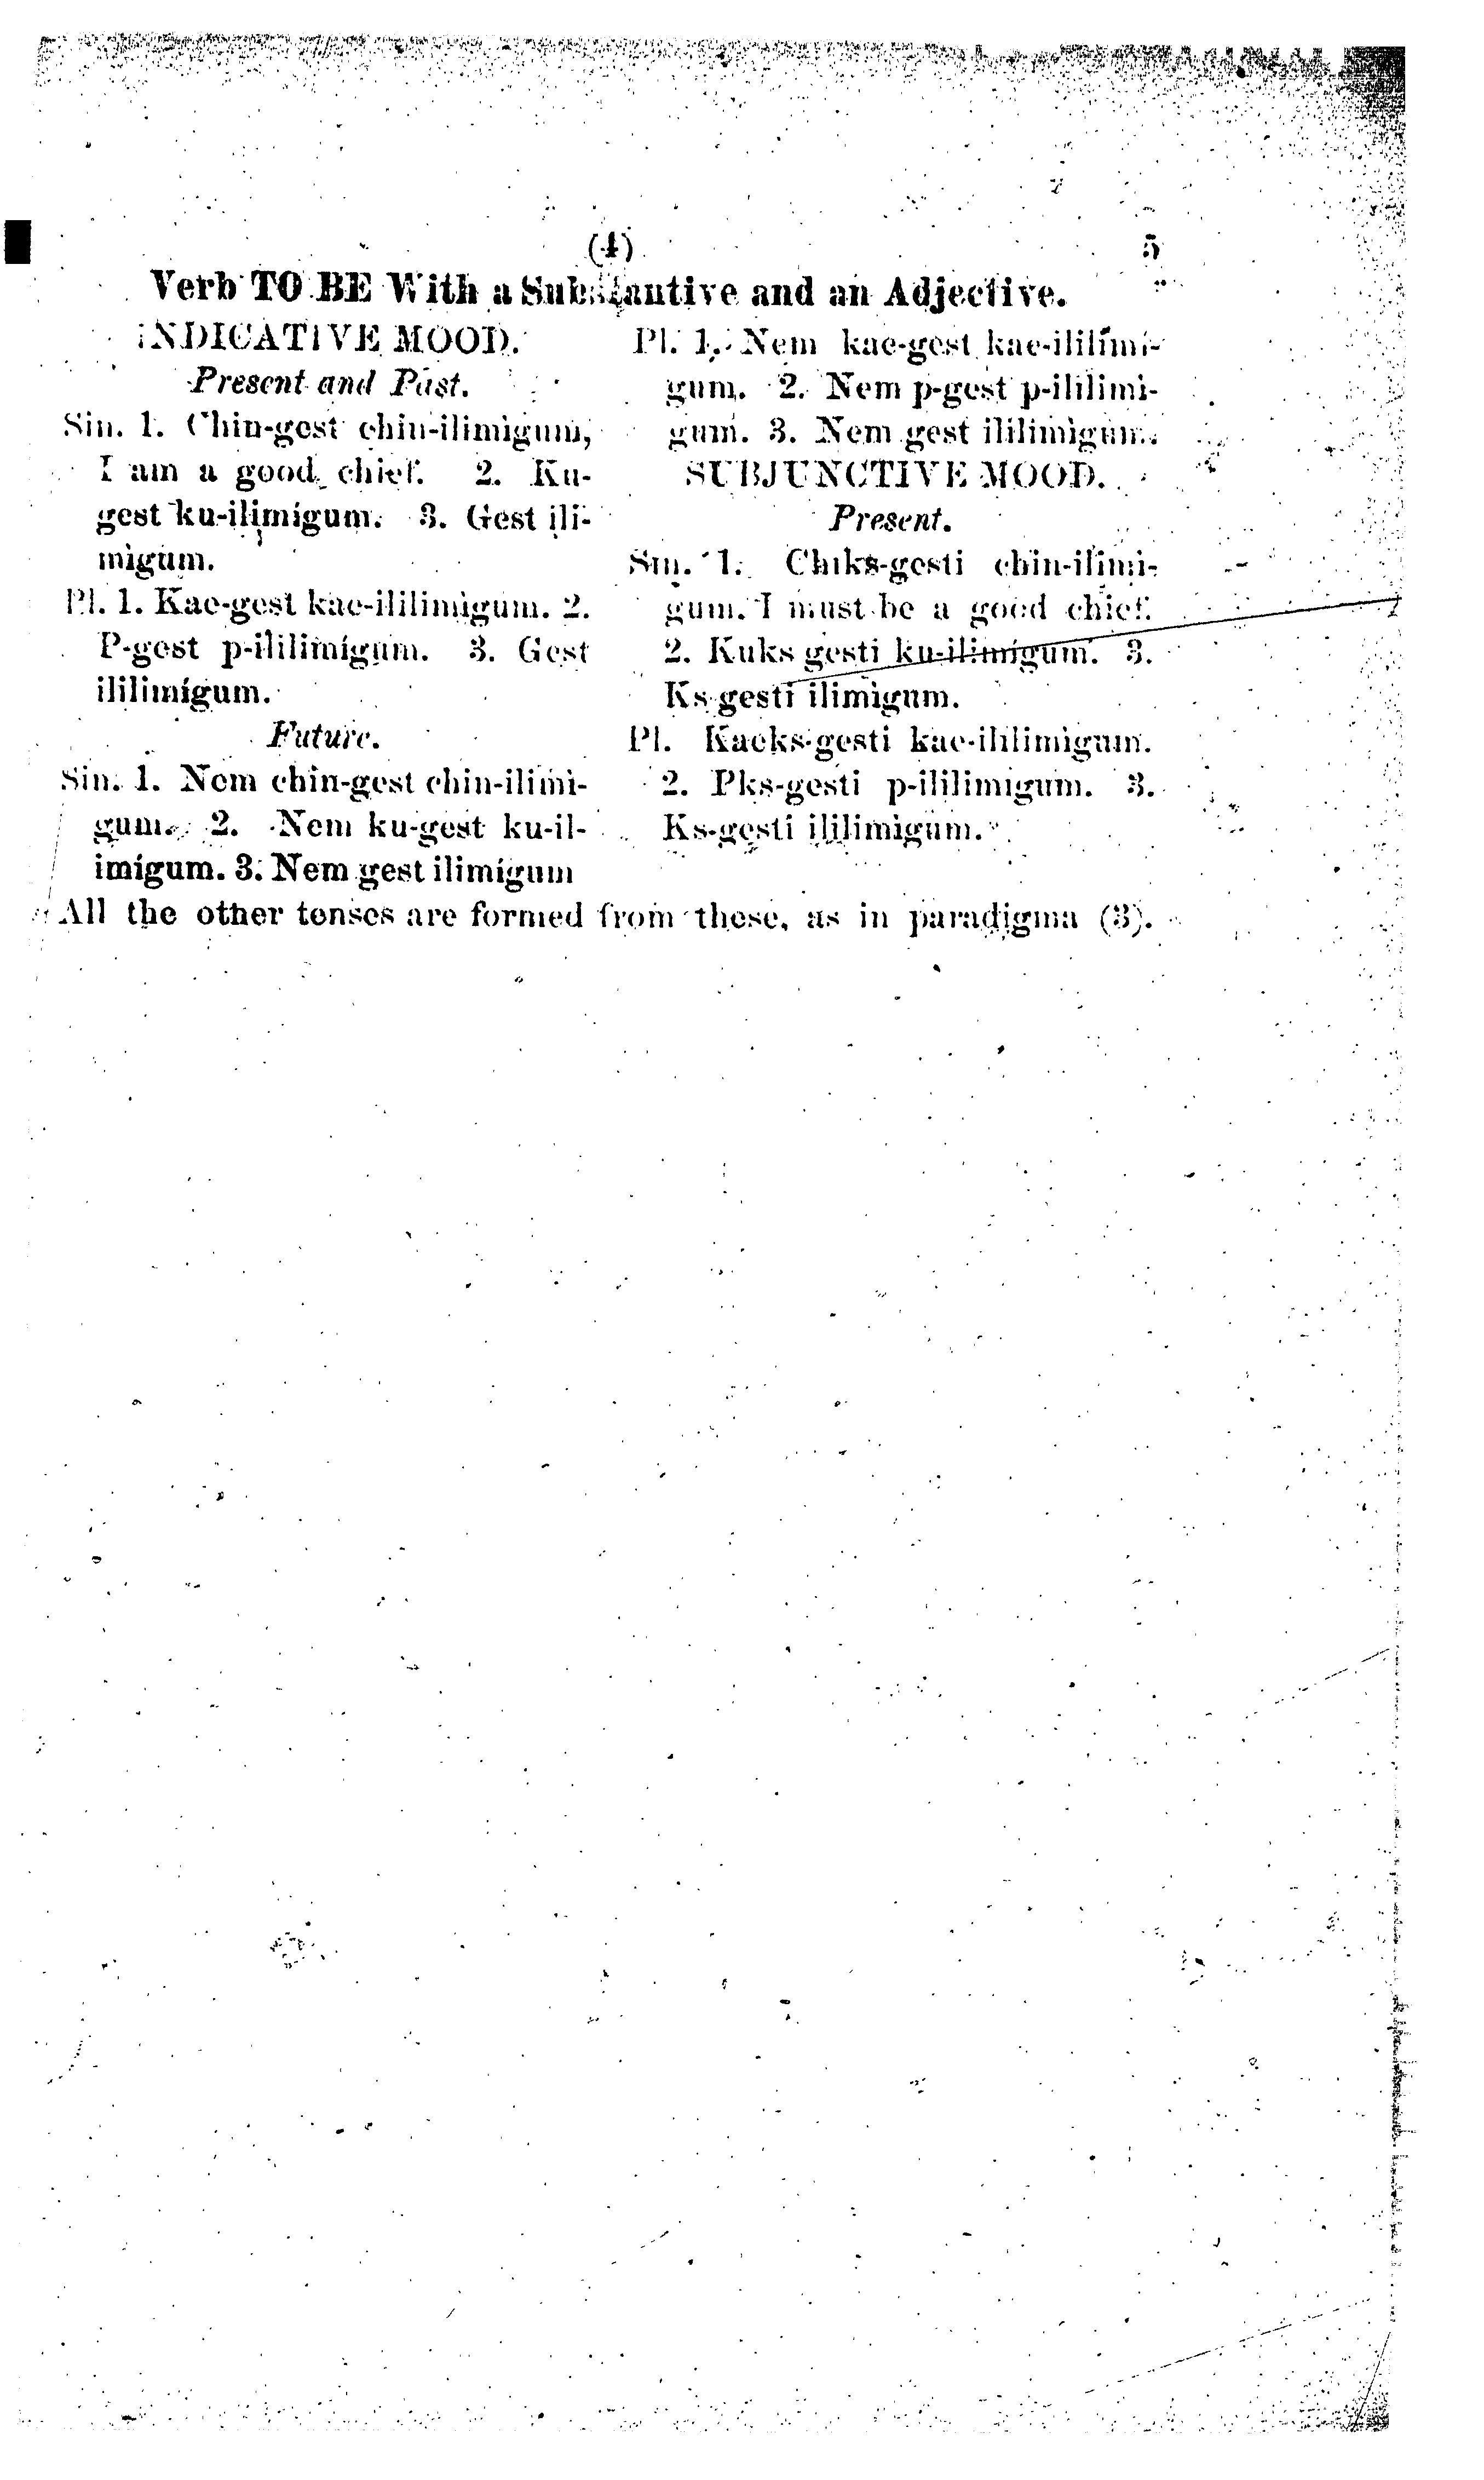 (4) 5
Verb TO BE With a Substantive and an Adjective.
INDICATIVE MOOD.
Present and Past.
Sin. 1. Chin-gest chin-ilimigum,
I am a good chief. 2. Ku-
gest ku-ilimígum. 3. Gest ili-
migum.
Pl. 1. Kae-gest kae-ililimigum. 2.
P-gest p-ililimígum. 3. Gest
ililimígum.
Future.
Sin. 1. Nem chin-gest chin-ilimi-
gum. 2. Nem ku-gest ku-il-
imigum. 3. Nem gest ilimígum
Pl. 1. Nem kae-gest kae-ililími-
gum. 2. Nem p-gest p-ililimi-
gum. 3. Nem gest ililimìgum.
SUBJUNCTIVE MOOD.
Present.
Sin. 1. Chiks-gesti chin-ilimi-
gum. I must be a good chief.
2. Kuks gesti ku-ilimígum. 3.
Ks gesti ilimìgum.
Pl. Kaeks-gesti kae-ililimìgum.
2. Pks-gesti p-ililimigum. 3.
Ks-gesti ililimìgum.
All the other tenses are formed from these, as in paradigma (3).